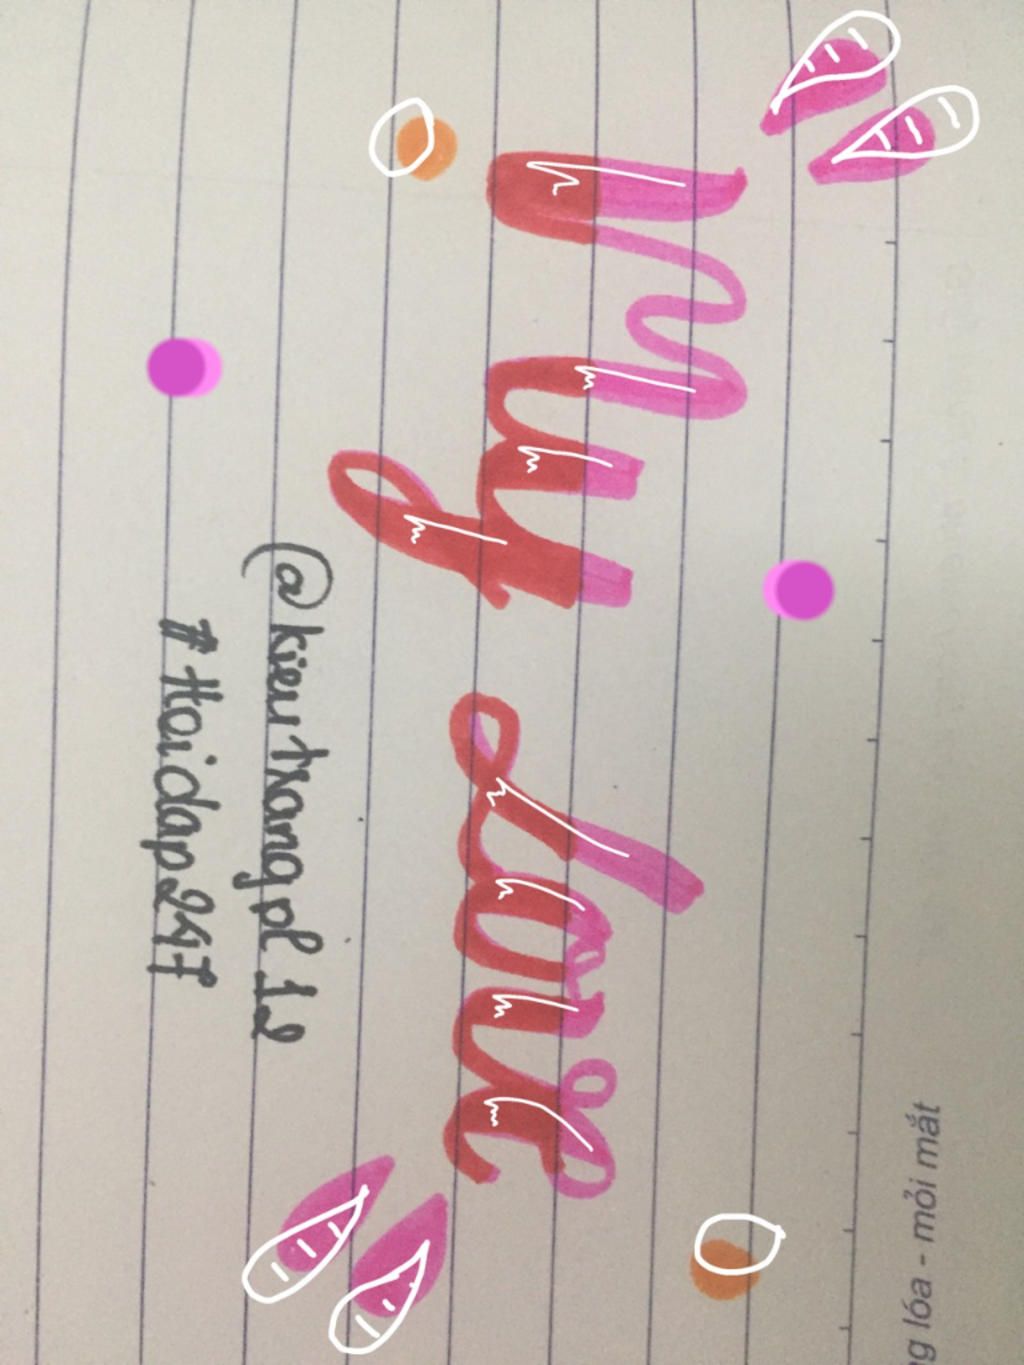 my love
@kieutrangpl12
#Hoidap247
lóa - mỏi mắt